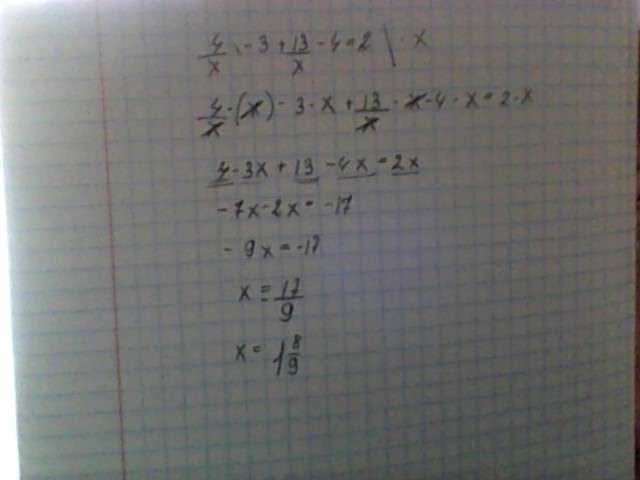 4/x - 3 + 13/x - 4 = 2 | · x
4/x · (x) - 3 · x + 13/x · x - 4 · x = 2 · x
4 - 3x + 13 - 4x = 2x
- 7x - 2x = -17
- 9x = -17
x = 17/9
x = 1 8/9